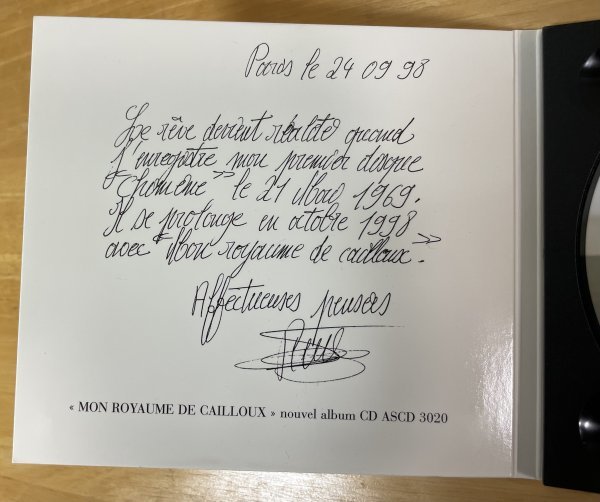 Paris le 24 09 98
Le rêve devient réalité quand
j'enregistre mon premier disque
le 21 Mars 1969.
Il se prolonge en octobre 1998
avec "Mon royaume de cailloux".
Affectueuses pensées
« MON ROYAUME DE CAILLOUX » nouvel album CD ASCD 3020